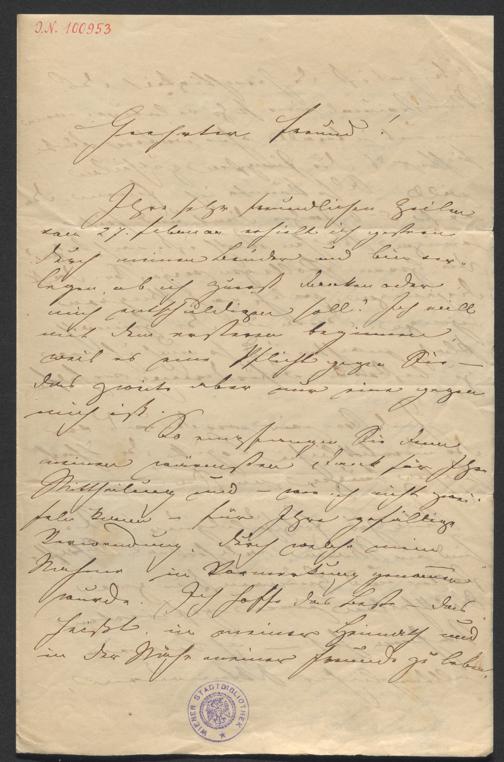 J.N. 100953
Geehrter Freund!
Ihre sehr freundlichen Zeilen
vom 27. Februar erhielt ich gestern
durch meinen Bruder und bin ver-
legen, ob ich zuerst danken oder
mich entschuldigen soll? Ich will
mit dem ersteren beginnen
weil es eine Pflicht gegen Sie –
das zweite aber nur eine gegen
mich ist.
So empfangen Sie denn
meinen wärmsten Dank für Ihre
Mittheilung und – wie ich nicht zwei-
feln kann – für Ihre gefällige
Verwendung, durch welche mein
Nahme in Vormerkung genommen
wurde. Ich hoffe das beste – das
heißt in meiner Heimath und
in der Nähe meiner Freunde zu leben.
WIENER STADTBIBLIOTHEK